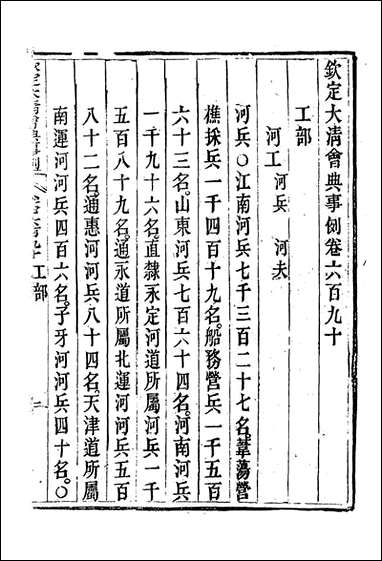 欽定大清會典事例卷六百九十
工部
河工河兵 河夫
河兵○江南河兵七千三百二十七名葦蕩營
樵採兵一千四百十九名船務營兵一千五百
六十三名山東河兵七百六十四名河南河兵
一千九十六名直隸永定河道所屬河兵一千
五百八十九名通永道所屬北運河河兵五百
八十二名通惠河河兵八十四名天津道所屬
南運河河兵四百六名子牙河河兵四十名○
工部